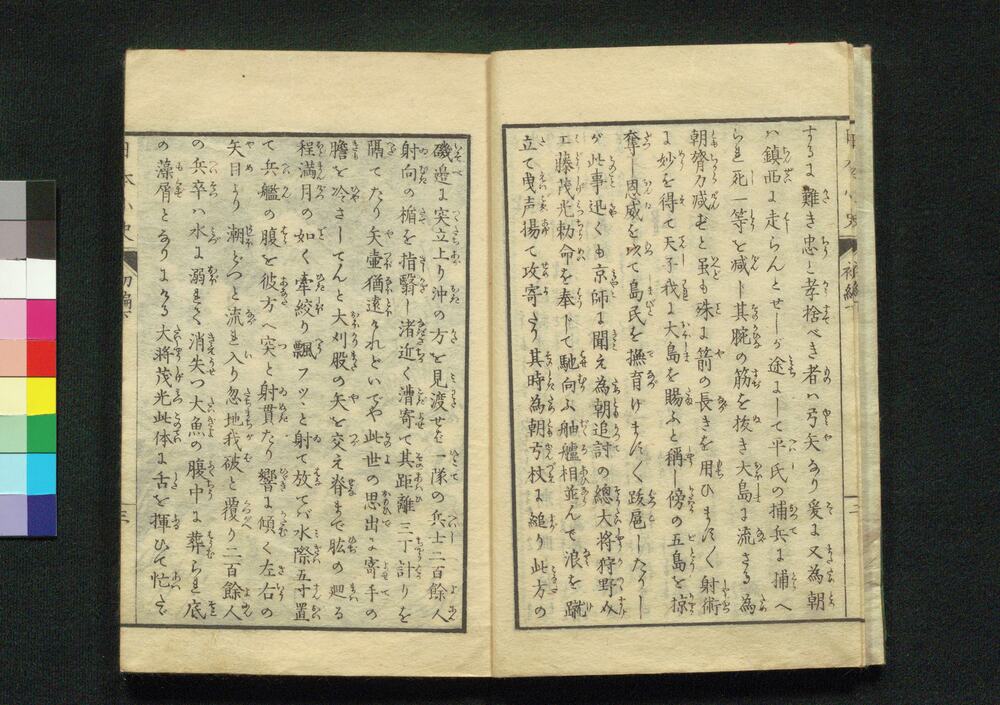 するに難き忠と孝捨べき者ハ弓矢なり爰に又為朝
ハ鎮西に走らんとせしが途にして平氏の捕兵に捕へ
られ死一等を减し其腕の筋を抜き大島に流さる為
朝膂力减ぜと虽も殊に箭の長きを用ひますく射術
に妙を得て天子我に大島を賜ふと稱し傍の五島を掠
奪し恩威を以て島民を撫育けますく跋扈したりし
が此事迅くも京師に聞え為朝追討の總大将狩野介
工藤茂光勅命を奉じて馳向ふ舳艫相並んで浪を蹴
立て曳声揚て攻寄たり其時為朝弓杖に縋り此方の
磯邊に突立上り沖の方を見渡せば一隊の兵士二百餘人
射向の楯を指翳し渚近く漕寄て其距離三丁計りを
隔てたり矢壷猶遠けれどいでや此世の思出に寄手の
膽を冷さしてんと大刈股の矢を交え脊まで肱の廻る
程満月の如く牽絞り飄フッと射て放てバ水際五寸置
て兵艦の腹を彼方へ突と射貫たり響に傾く左右の
矢目より潮どつと流れ入り忽地我破と覆り二百餘人
の兵卒ハ水に溺れて消失つ大魚の腹中に葬られ底
の藻屑となりにける大将茂光此体に舌を揮ひて忙て
日本小史
初編
三